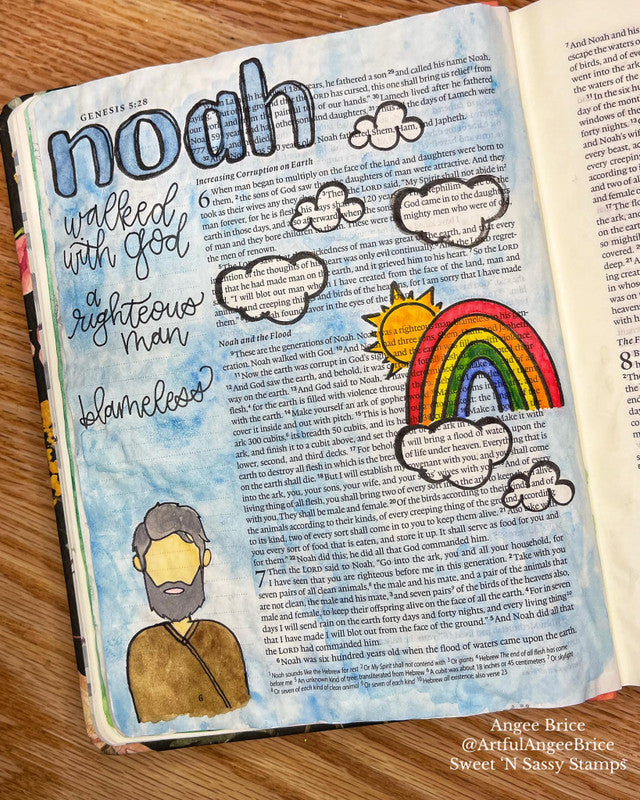 GENESIS 5:28
noah
walked
with god
a
righteous
man
blameless
years, he fathered a son 29 and called his name Noah,
the LORD has cursed, this one shall bring us relief from
of our hands." 30 Lamech lived after he fathered
daughters. the days of Lamech were
Noah fathered Shem, Ham, and Japheth.
Increasing Corruption on Earth
6 When man began to multiply on the face of the land and daughters were born to
them, 2 the sons of God saw that the daughters of man were attractive. And they
took as their wives any they chose. 3 Then the LORD said, "My Spirit shall not abide in
man forever, for he is flesh: his days shall be 120 years." Nephilim were on the
earth in those days, and also afterward, when the sons of God came in to the daughters
of man and they bore children to them. These were the mighty men who were of old,
the men of renown.
wickedness of man was great in the earth, and that every
intention of the thoughts of his heart was only evil continually. 6 And the LORD regret-
that he had made man on the earth, and it grieved him to his heart. 7 So the LORD
"I will blot out man whom I have created from the face of the land, man and
animals and creeping things and birds of the heavens, for I am sorry that I have made
them." found favor in the eyes of the LORD.
Noah and the Flood
9 These are the generations of Noah. Noah was a righteous man, blameless in his gen-
eration. Noah walked with God. 10 And Noah had three sons, Shem, Ham, and Japheth.
11 Now the earth was corrupt in God's sight, and the earth was filled with violence.
12 And God saw the earth, and behold, it was corrupt,
way on the earth. 13 And God said to Noah,
flesh, for the earth is filled with violence through
with the earth. 14 Make yourself an ark of gopher
cover it inside and out with pitch. 15 This is how
ark 300 cubits, its breadth 50 cubits, and its
ark, and finish it to a cubit above, and set the Make it with
lower, second, and third decks. 17 For behold, I will bring a flood of waters upon the
earth to destroy all flesh in which is the breath of life under heaven. Everything that is
on the earth shall die. 18 But I will establish my covenant with you, and you shall come
into the ark, you, your sons, your wife, and your sons' wives with you. 19 And of every
living thing of all flesh, you shall bring two of every sort into the ark to keep them alive
with you. They shall be male and female. 20 Of the birds according to their kinds, and of
the animals according to their kinds, of every creeping thing of the ground, according
to its kind, two of every sort shall come in to you to keep them alive. 21 Also take with
you every sort of food that is eaten, and store it up. It shall serve as food for you and
for them." 22 Noah did this; he did all that God commanded him.
7 Then the LORD said to Noah, "Go into the ark, you and all your household, for
I have seen that you are righteous before me in this generation. 2 Take with you
seven pairs of all clean animals, the male and his mate, and a pair of the animals that
are not clean, the male and his mate, 3 and seven pairs of the birds of the heavens also,
male and female, to keep their offspring alive on the face of all the earth. 4 For in seven
days I will send rain on the earth forty days and forty nights, and every living thing
that I have made I will blot out from the face of the ground." 5 And Noah did all that
the LORD had commanded him.
6 Noah was six hundred years old when the flood of waters came upon the earth.
1 Noah sounds like the Hebrew for rest 2 Or My Spirit shall not contend with 3 Or giants 4 Hebrew The end of all flesh has come
before me 5 An unknown kind of tree; transliterated from Hebrew 6 A cubit was about 18 inches or 45 centimeters 7 Or skylight
8 Or seven of each kind of clean animal 9 Or seven of each kind 10 Hebrew all existence; also verse 23
6
7 And Noah and his
escape the waters of
of birds, and of every
went into the ark
the waters of the
11 In the six
day of the month
windows of the
forty nights.
and Noah's
every beast,
every creeping
and two of all
and female of
17 The flo
the ark, and
on the earth
so mightily
covered.
deep. 21 An
ing creat
in whose
that was
heavens
with hi
The F
8
Angee Brice
@ArtfulAngeeBrice
Sweet 'N Sassy Stamps